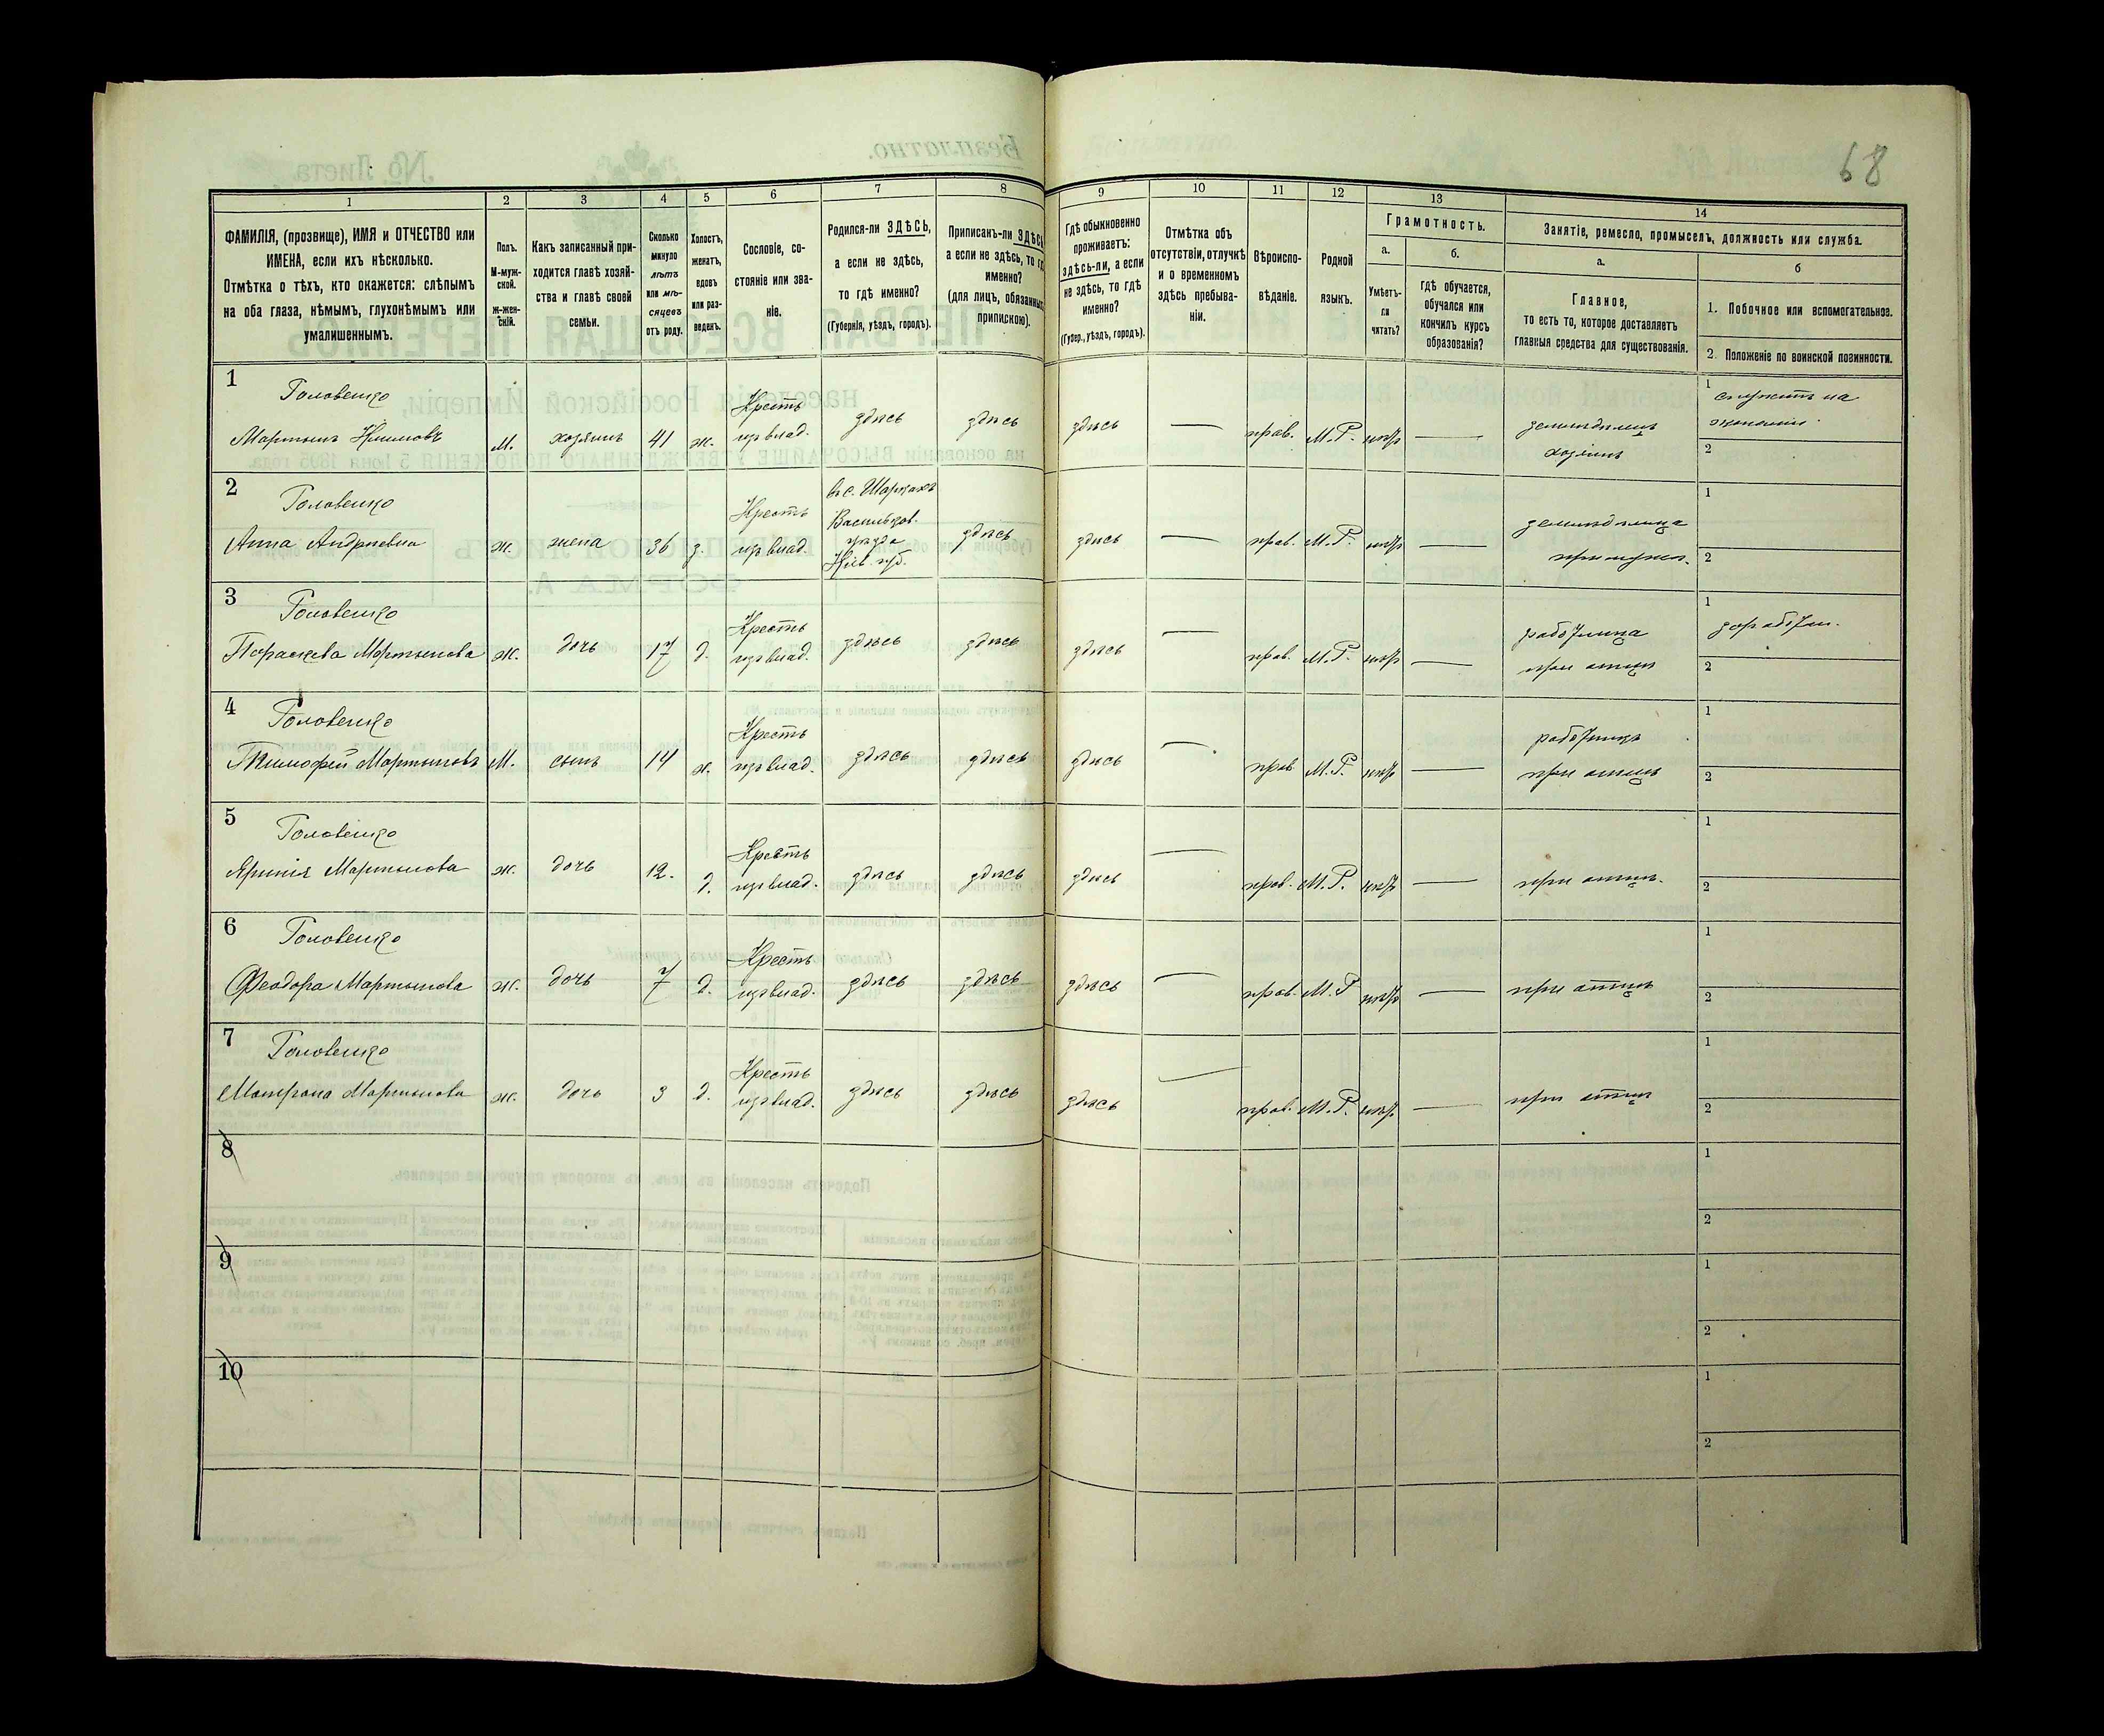 68
1
2
3
4
5
6
7
8
9
10
11
12
13
14
ФАМИЛІЯ, (прозвище), ИМЯ и ОТЧЕСТВО или
ИМЕНА, если ихъ нѣсколько.
Отмѣтка о тѣхъ, кто окажется: слѣпымъ
на оба глаза, нѣмымъ, глухонѣмымъ или
умалишеннымъ.
Полъ.
М-муж-
ской.
ж-жен-
скій.
Какъ записанный при-
ходится главѣ хозяй-
ства и главѣ своей
семьи.
Сколько
минуло
лѣтъ
или мѣ-
сяцевъ
отъ роду.
Холостъ,
женатъ,
вдовъ
или раз-
веденъ.
Сословіе, со-
стояніе или зва-
ніе.
Родился-ли ЗДѢСЬ,
а если не здѣсь,
то гдѣ именно?
(Губернія, уѣздъ, городъ).
Приписанъ-ли ЗДѢСЬ
а если не здѣсь, то гдѣ
именно?
(для лицъ, обязанныхъ
припискою).
Гдѣ обыкновенно
проживаетъ:
здѣсь-ли, а если
не здѣсь, то гдѣ
именно?
(Губер., уѣздъ, городъ).
Отмѣтка объ
отсутствіи, отлучкѣ
и о временномъ
здѣсь пребыва-
ніи.
Вѣроиспо-
вѣданіе.
Родной
языкъ.
Грамотность.
а.
Умѣетъ-
ли
читать?
б.
Гдѣ обучается,
обучался или
кончилъ курсъ
образованія?
Занятіе, ремесло, промыселъ, должность или служба.
а.
Главное,
то есть то, которое доставляетъ
главныя средства для существованія.
б
1. Побочное или вспомогательное.
2. Положеніе по воинской повинности.
1
Головенко
Мартынъ Климовъ
М.
хозяинъ
41
ж.
Крестъ
изъ влад.
здѣсь
здѣсь
здѣсь
—
прав.
М.Р.
—
земледѣлецъ
хозяинъ
1
служитъ на
экономіи.
2
2
Головенко
Анна Андріевна
ж.
жена
36
з.
Крестъ
изъ влад.
въ с.
Васильков.
уѣзда
Кіев. губ.
здѣсь
здѣсь
—
прав.
М.Р.
—
земледѣлица
при мужѣ.
1
2
3
Головенко
Параскева Мартынова
ж.
дочь
17
д.
Крестъ
изъ влад.
здѣсь
здѣсь
здѣсь
—
прав.
М.Р.
—
работница
при отцѣ
1
2
4
Головенко
Тимофей Мартыновъ
М.
сынъ
14
х.
Крестъ
изъ влад.
здѣсь
здѣсь
здѣсь
—
прав
М.Р.
—
работникъ
при отцѣ
1
2
5
Головенко
Яринія Мартынова
ж.
дочь
12.
д.
Крестъ
изъ влад.
здѣсь
здѣсь
здѣсь
—
прав.
М.Р.
—
при отцѣ.
1
2
6
Головенко
Феодора Мартынова
ж.
дочь
7
д.
Крестъ
изъ влад.
здѣсь
здѣсь
здѣсь
—
прав.
М.Р
—
при отцѣ
1
2
7
Головенко
Матрона Мартынова
ж.
дочь
3
д.
Крестъ
изъ влад.
здѣсь
здѣсь
здѣсь
—
прав.
М.Р.
—
при отцѣ
1
2
8
1
2
9
1
2
10
1
2